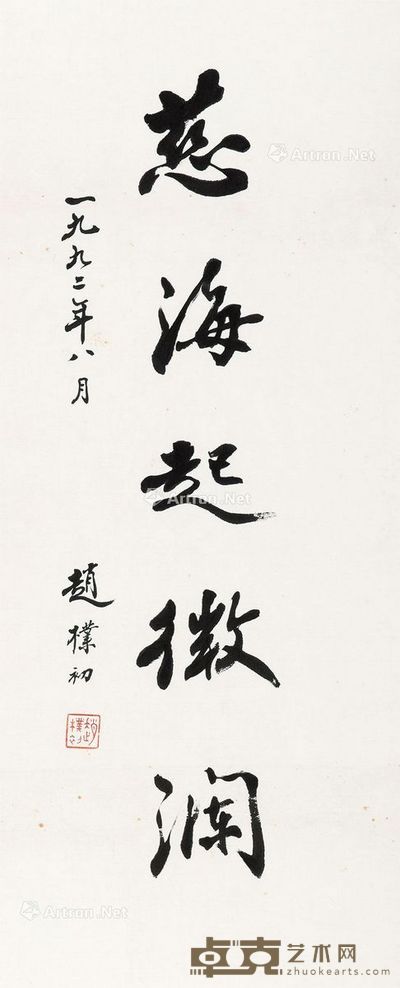 慈海起微澜
一九九二年八月
趙樸初
Artron.Net
Artron.Net
Artron.Net
卓克艺术网
zhuokearts.com